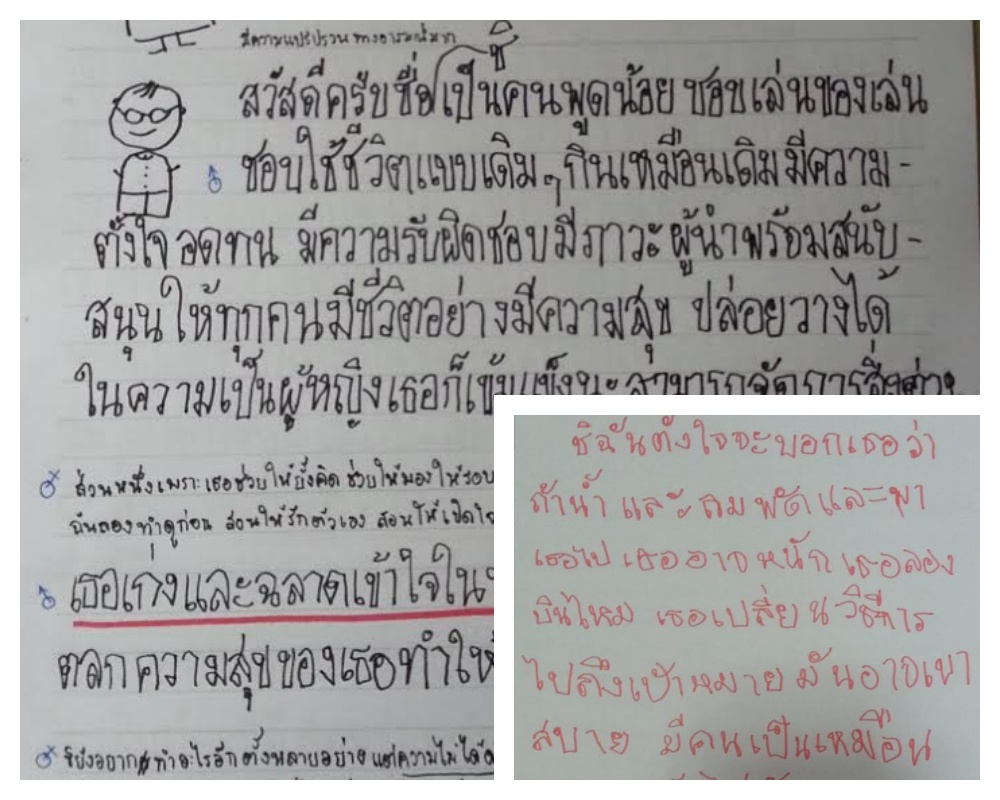 มีความแปรปรวนทางอารมณ์มาก
ชี
สวัสดีครับชื่อเป็นคนพูดน้อย ชอบเล่นของเล่น
ชอบใช้ชีวิตแบบเดิม ๆ กินเหมือนเดิมมีความ-
ตั้งใจ อดทน มีความรับผิดชอบมีภาวะผู้นำพร้อมสนับ-
สนุนให้ทุกคนมีชีวิตอย่างมีความสุข ปล่อยวางได้
ในความเป็นผู้หญิงเธอก็เข้มแข็งนะ สามารถจัดการสิ่งต่าง
ส่วนหนึ่งเพราะเธอช่วยให้ยั้งคิด ช่วยให้มองให้รอบ
ฉันลองทำดูก่อน สอนให้รักตัวเอง สอนให้เปิดใจ
เธอเก่งและฉลาดเข้าใจใน
ตลกความสุขของเธอทำให้
ชียังอยากทำอะไรอีกตั้งหลายอย่าง แต่ความไม่ได้ด
ชิฉันตั้งใจจะบอกเธอว่า
ถ้าน้ำ และ ลม พัด และพา
เธอไป เธออาจหนัก เธอลอง
บินไหม เธอเปลี่ยนวิธีการ
ไปถึงเป้าหมาย มันอาจเบา
สบาย มีคนเป็นเหมือน